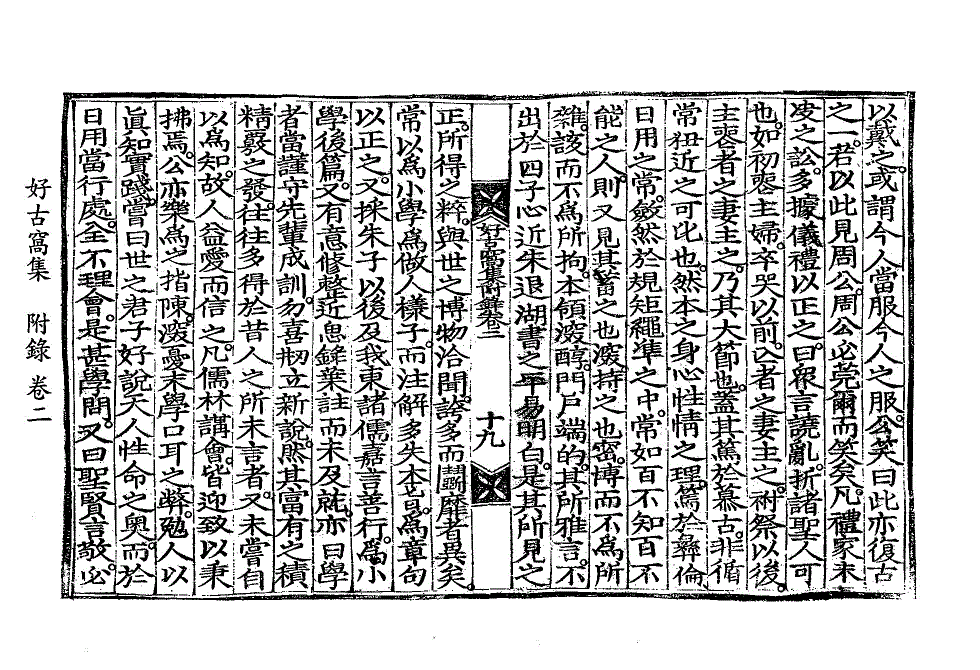 以戴之。或謂今人當服今人之服。公笑曰此亦復古
之一。若以此見周公。周公必莞爾而笑矣。凡禮家未
决之訟。多據儀禮以正之。曰衆言譊亂。折諸聖人可
也。如初喪主婦。卒哭以前。亡者之妻主之。祔祭以後。
主喪者之妻主之。乃其大節也。盖其篤於慕古。非循
常狃近之可比也。然本之身心性情之理。篤於彝倫
日用之常。斂然於規矩繩準之中。常如百不知百不
能之人。則又見其蓄之也深。持之也密。博而不爲所
雜。該而不爲所拘。本領深醇。門戶端的。其所雅言。不
出於四子心近朱退湖書之平易明白。是其所見之
好古窩集附錄卷二 十九
正。所得之粹。與世之博物洽聞。誇多而鬭靡者異矣。
常以爲小學爲做人樣子。而注解多失本旨。爲章句
以正之。又採朱子以後及我東諸儒嘉言善行。爲小
學後篇。又有意修整近思錄葉註而未及就。亦曰學
者當謹守先輩成訓。勿喜刱立新說。然其富有之積
精覈之發。往往多得於昔人之所未言者。又未嘗自
以爲知。故人益愛而信之。凡儒林講會。皆迎致以秉
拂焉。公亦樂爲之指陳。深憂末學口耳之弊。勉人以
眞知實踐。嘗曰世之君子好說天人性命之奧。而於
日用當行處。全不理會。是甚學問。又曰聖賢言敬。必
好古窩集 附錄 卷二